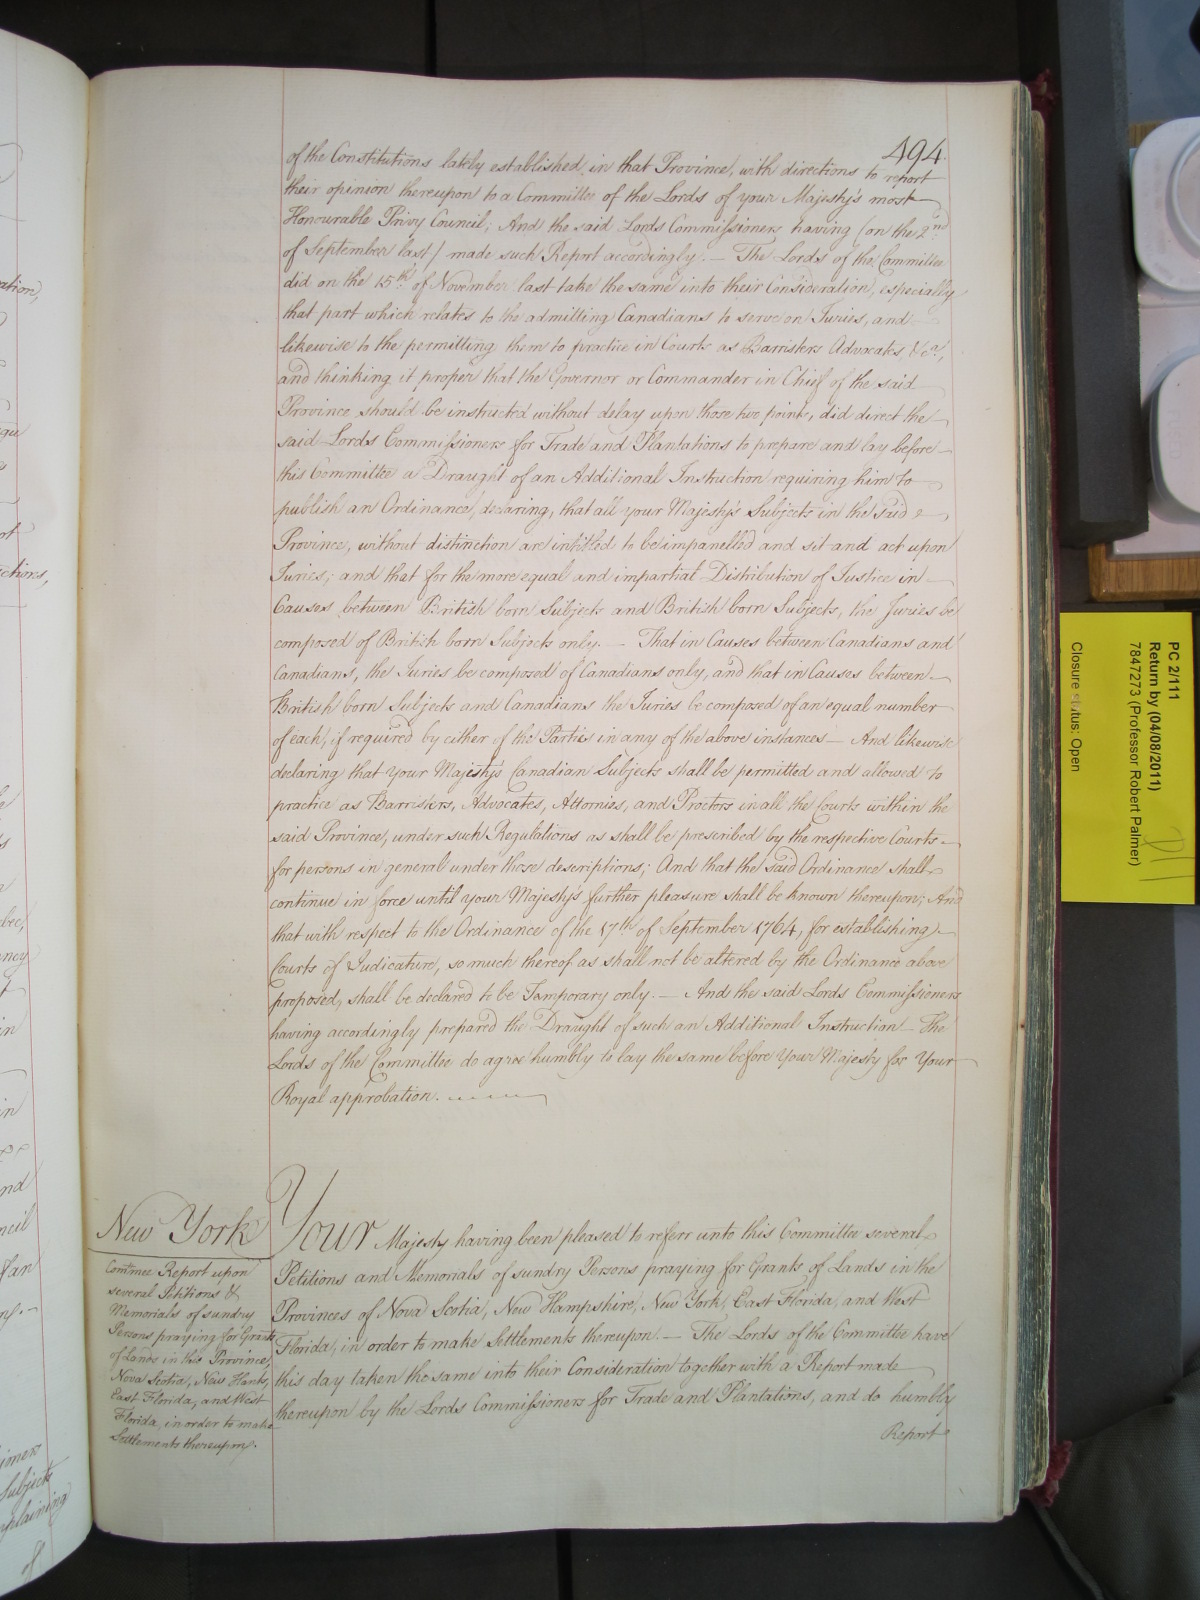 494.
of the Constitutions lately established in that Province, with directions to report
their opinion thereupon to a Committee of the Lords of your Majesty's most
Honourable Privy Council; And the said Lords Commissioners having (on the 2nd
of September last) made such Report accordingly. — The Lords of the Committee
did on the 15th of November last take the same into their Consideration, especially
that part which relates to the admitting Canadians to serve on Juries, and
likewise to the permitting them to practice in Courts as Barristers Advocates &ca,
and thinking it proper that the Governor or Commander in Chief of the said
Province should be instructed without delay upon those two points, did direct the
said Lords Commissioners for Trade and Plantations to prepare and lay before
this Committee a Draught of an Additional Instruction requiring him to
publish an Ordinance, declaring, that all your Majesty's Subjects in the said
Province, without distinction are intitled to be impanelled and sit and act upon
Juries; and that for the more equal and impartial Distribution of Justice in
Causes between British born Subjects and British born Subjects, the Juries be
composed of British born Subjects only. — That in Causes between Canadians and
Canadians, the Juries be composed of Canadians only, and that in Causes between
British born Subjects and Canadians the Juries be composed of an equal number
of each, if required by either of the Parties in any of the above instances — And likewise
declaring that your Majesty's Canadian Subjects shall be permitted and allowed to
practice as Barristers, Advocates, Attornies, and Proctors in all the Courts within the
said Province, under such Regulations as shall be prescribed by the respective Courts
for persons in general under those descriptions; And that the said Ordinance shall
continue in force until your Majesty's further pleasure shall be known thereupon; And
that with respect to the Ordinance of the 17th of September 1764, for establishing
Courts of Judicature, so much thereof as shall not be altered by the Ordinance above
proposed, shall be declared to be Temporary only. — And the said Lords Commissioners
having accordingly prepared the Draught of such an Additional Instruction — The
Lords of the Committee do agree humbly to lay the same before Your Majesty for Your
Royal approbation.
New York
Comttee Report upon
several Petitions &
Memorials of sundry
Persons praying for Grants
of Lands in this Province,
Nova Scotia, New Hamps,
East Florida, and West
Florida, in order to make
Settlements thereupon.
Your Majesty having been pleased to referr unto this Committee several
Petitions and Memorials of sundry Persons praying for Grants of Lands in the
Provinces of Nova Scotia, New Hampshire, New York, East Florida, and West
Florida, in order to make Settlements thereupon. — The Lords of the Committee have
this day taken the same into their Consideration together with a Report made
thereupon by the Lords Commissioners for Trade and Plantations, and do humbly
Report
PC 2/111
Return by (04/08/2011)
7847273 (Professor Robert Palmer)
Closure status: Open